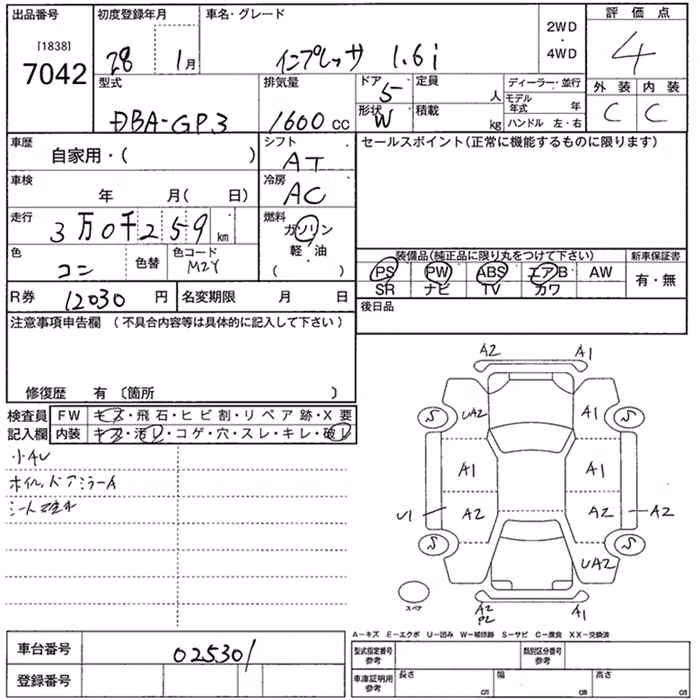 出品番号 初度登録年月 車名・グレード 2WD・4WD 評価点
[1838]
7042 28 1月 インプレッサ 1.6i 4
型式 排気量 ドア 定員 人 ディーラー・並行 外装 内装
DBA-GP3 1600cc 5 モデル年式 年 C C
形状 W 積載 kg ハンドル 左・右
車歴 自家用・( ) シフト AT セールスポイント(正常に機能するものに限ります)
車検 年 月( 日) 冷房 AC
走行 3万0千259km 燃料 ガソリン・軽油 ( )
色 コン 色替 色コード M2Y 装備品(純正品に限り丸をつけて下さい) 新車保証書
PS PW ABS エアB AW 有・無
SR ナビ TV カワ
R券 12030円 名変期限 月 日 後日品
注意事項申告欄 (不具合内容等は具体的に記入して下さい)
修復歴 有 〔箇所 〕
検査員 FW キズ・飛石・ヒビ割・リペア跡・X要
記入欄 内装 キズ・汚レ・コゲ・穴・スレ・キレ・破レ
小AU
ホイル、ドアミラーA
A2 A1
S UA2 A1 S
A1 A1
U1 A2 A2 A2
S UA2 S
スペア A2 P2 A1
A−キズ E−エクボ U−凹み W−補修跡 S−サビ C−腐食 XX−交換済
車台番号 025301 型式指定番号 参考 類別区分番号 参考
登録番号 車庫証明用 参考 長さ cm 幅 cm 高さ cm